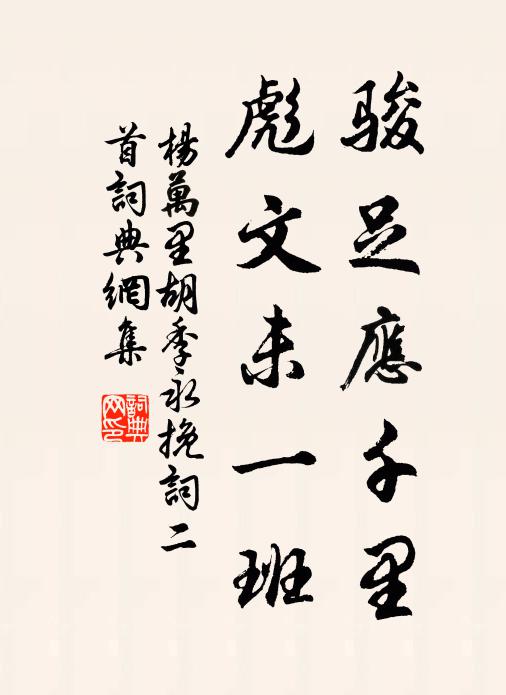 駿足應千里
彪文未一班
楊萬里胡季永挽詞二
首詞典網集
詞典
网印